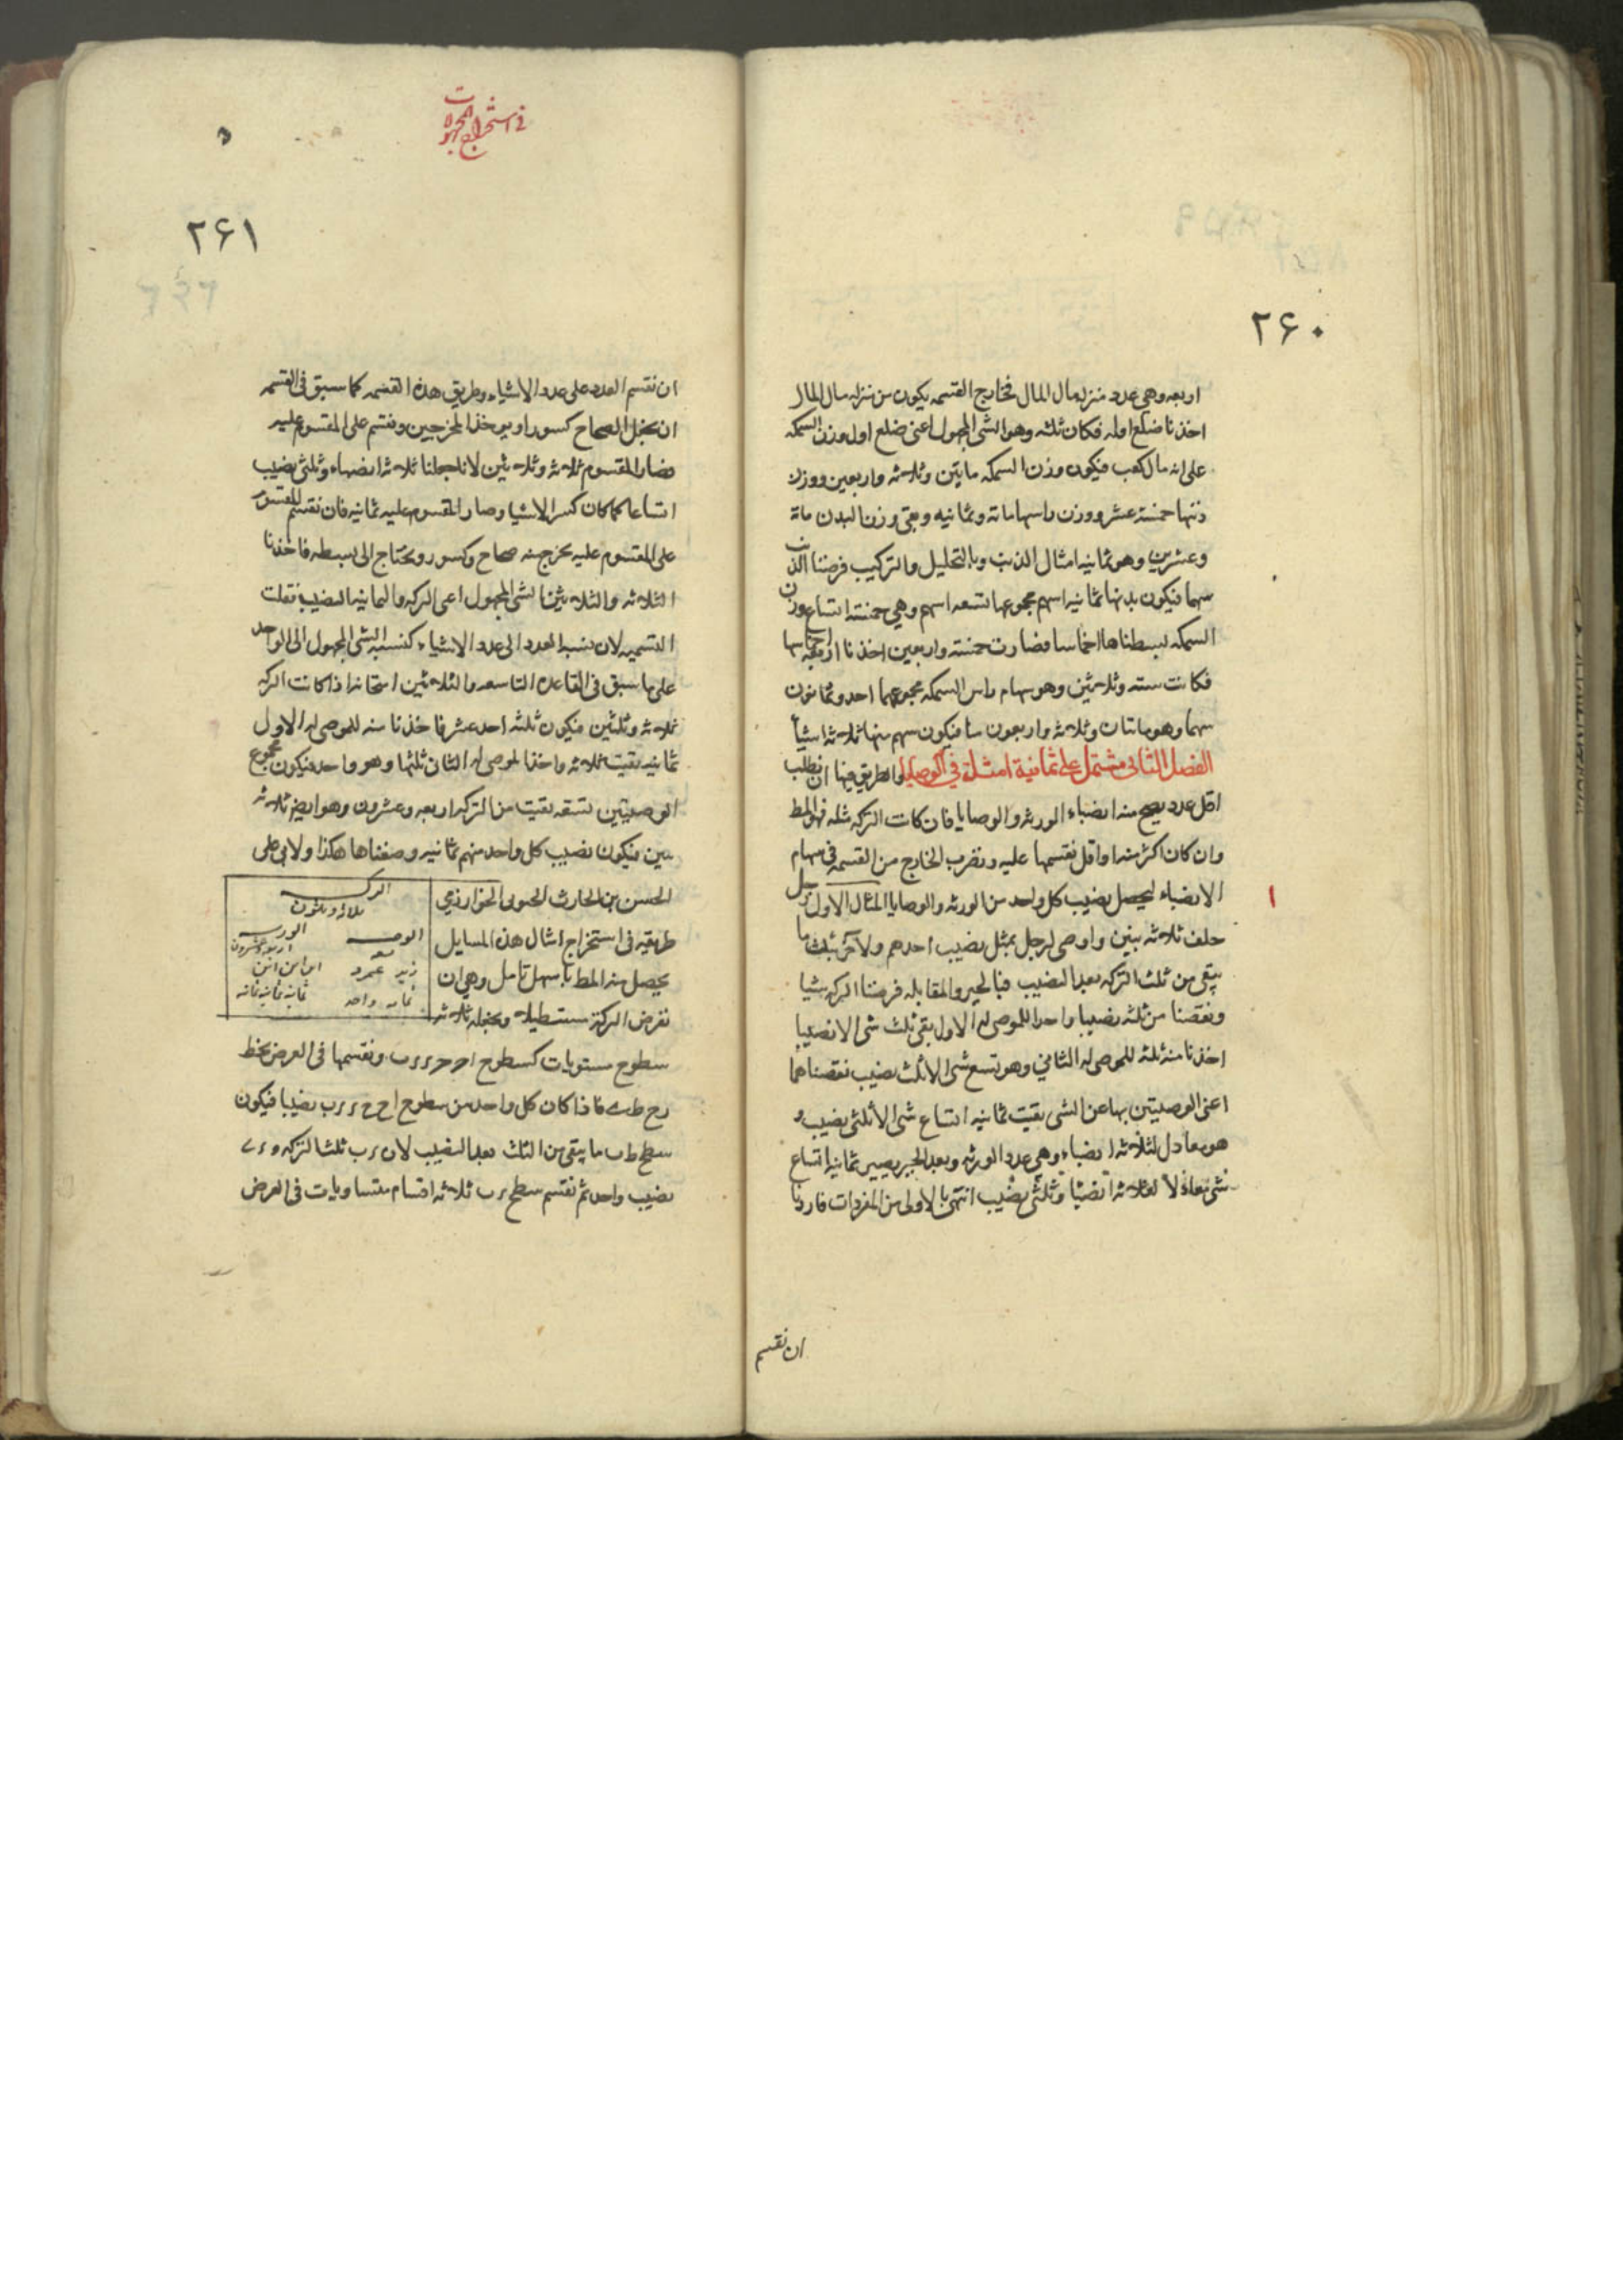 ٢۶٠
اربعه وهى عدد منزله مال المال فخارج القسمه يكون من منزله مال المال
اخذنا ضلع اوله فكان ثلثه وهو الشى المجهول اعنى ضلع اول وزن السمكه
على انه مال كعب فيكون وزن السمكه مايتين وثلاثه واربعين ووزن
ذنبها خمسة عشر ووزن راسها ماة وثمانيه وبقى وزن البدن ماة
وعشرين وهو ثمانيه امثال الذنب وبالتحليل والتركيب فرضنا الذنب
سهما فيكون بدنها ثمانيه اسهم مجموعها تسعه اسهم وهى خمسة اتساع وزن
السمكه بسطناها اخماسا فصارت خمسة واربعين اخذنا اربعه اخماسها
فكانت سته وثلاثين وهو سهام راس السمكه مجموعهما احد وثمانون
سهما وهو مائتان وثلاثه واربعون منا فيكون سهم منها ثلاثه اشيأ
الفصل الثانى مشتمل على ثمانية امثلة فى الوصايا والطريق فيها ان نطلب
اقل عدد يصح منه انصباء الورثه والوصايا فان كانت التركه مثله فهو المط
وان كان اكثر منه او اقل نقسمها عليه ونضرب الخارج من القسمه فى سهام
الانصباء ليحصل نصيب كل واحد من الورثه والوصايا المثال الاول رجل
١
خلف ثلاثه بنين واوصى لرجل بمثل نصيب احدهم ولآخر بثلث ما
يبقى من ثلث التركه بعد النصيب فبالجبر والمقابله فرضنا التركه شيا
ونقصنا من ثلثه نصيبا واحدا للموصى له الاول بقى ثلث شى الا نصيبا
اخذنا منه ثلثه للموصى له الثانى وهو تسع شى الا ثلث نصيب نقصناهما
اعنى الوصيتين بها عن الشى بقيت ثمانيه اتساع شى الا ثلثى نصيب و
هو معادل لثلاثه انصباء وهى عدد الورثه وبعد الجبر يصير ثمانيه اتساع
شى معادلا لثلاثه انصبا وثلثى نصيب انتهى بالاولى من المفردات فاردنا
ان نقسم
فى استخراج المجهولات
٢۶١
ان نقسم العدد على عدد الاشياء وطريق هذه القسمه كما سبق فى القسمه
ان نجعل الصحاح كسورا ويوخذ المخرجين ونقسم على المقسوم عليه
فصار المقسوم ثلاثه وثلاثين لانا جعلنا ثلاثه انصباء وثلثى نصيب
اتساعا كما كان كسر الاشيا وصار المقسوم عليه ثمانيه فان نقسم المقسوم
على المقسوم عليه يخرج منه صحاح وكسور ونحتاج الى بسطه فاخذنا
الثلاثه والثلاثين الشى المجهول اعنى التركه والثمانيه النصيب نقلت
التسميه لان نسبه العدد الى عدد الاشياء كنسبه الشى المجهول الى الواحد
على ما سبق فى القاعده التاسعه والثلاثين امتحانه اذا كانت التركه
ثلاثه وثلثين فيكون ثلثه احد عشر فاخذنا منه للموصى له الاول
ثمانيه بقيت ثلاثه واخذ الموصى له الثانى ثلثها وهو واحد فيكون مجموع
الوصيتين تسعه بقيت من التركه اربعه وعشرون وهو ايض ثلاثه
بنين فيكون نصيب كل واحد منهم ثمانيه وصفناها هكذا ولابى على
الحسن بن الحارث الحبوبى الخوارزمى
طريقه فى استخراج امثال هذه المسايل
يحصل منه المط باسهل تامل وهى ان
نفرض التركة مستطيلا ونجعله ثلاثه
التركه
ثلاثه وثلثون
الوصيه
تسعه
زيد عمرو
ثمانيه واحد
الورثه
اربعه وعشرون
ابن ابن ابن
ثمانيه ثمانيه ثمانيه
سطوح مستويات كسطوح ونقسمها فى العرض بخط
فاذا كان كل واحد من سطوح نصيبا فيكون
سطح ما يبقى من الثلث بعد النصيب لان ثلث التركه و
نصيب واحد ثم نقسم سطح ثلاثه اقسام متساويات فى العرض